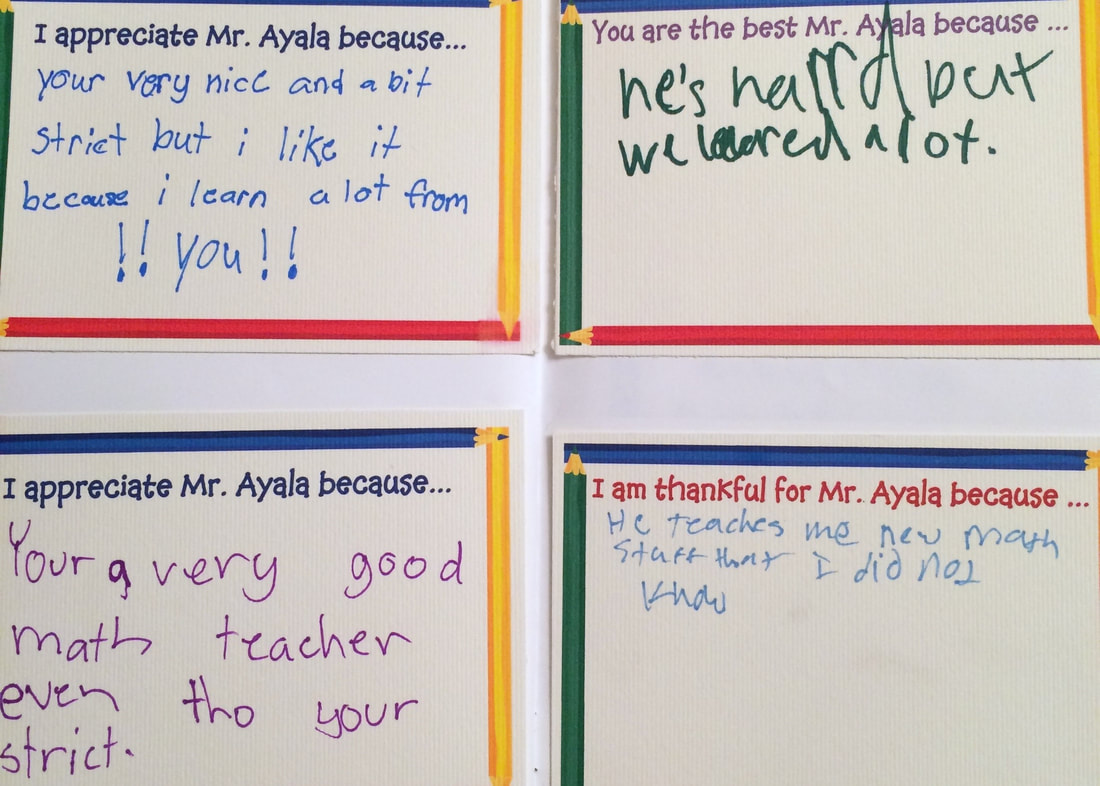 I appreciate Mr. Ayala because...
your very nice and a bit
strict but i like it
because i learn a lot from
!! you!!
You are the best Mr. Ayala because ...
he's harrd but
we learred a lot.
I appreciate Mr. Ayala because...
Your a very good
math teacher
even tho your
strict.
I am thankful for Mr. Ayala because ...
He teaches me new math
stuff that I did not
know